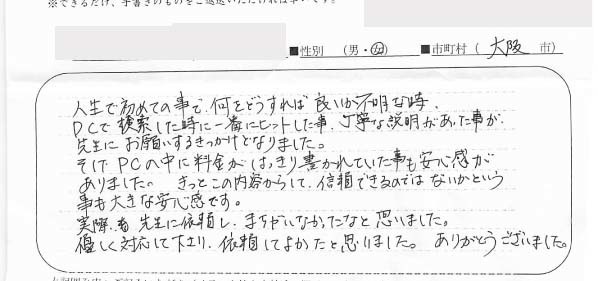 ※できるだけ、手書きのものをご返送いただければ幸いです。
■性別 (男・女) ■市町村 ( 大阪 市)
人生で初めての事で、何をどうすれば良いか不明な時、
PCで検索した時に一番にヒットした事、丁寧な説明があった事が、
先生にお願いするきっかけとなりました。
そしてPCの中に料金がはっきり書かれていた事も安心感が
ありました。 きっとこの内容からして、信頼できるのではないかという
事も大きな安心感です。
実際、先生に依頼し、まちがいなかったなと思いました。
優しく対応して下さり、依頼してよかったと思いました。 ありがとうございました。